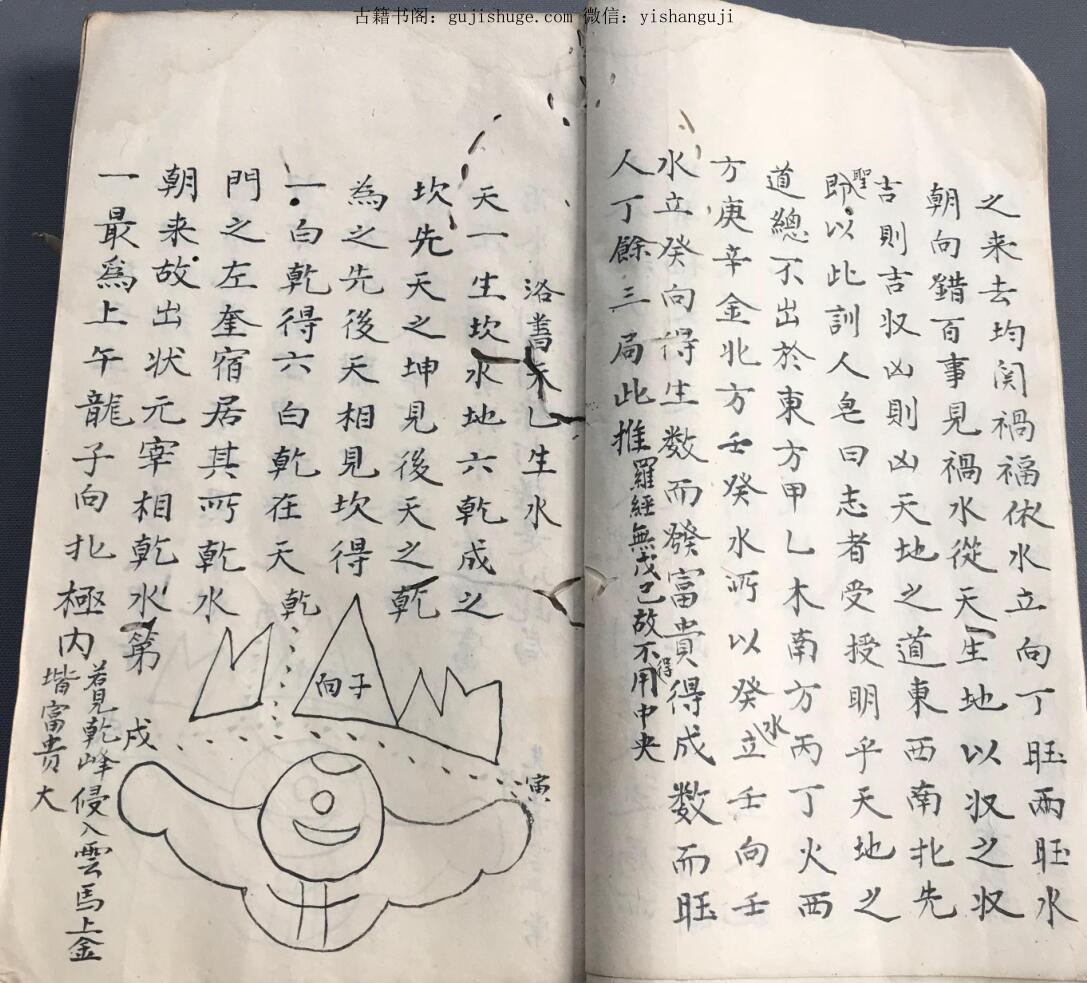 古籍书阁：gujishuge.com 微信：yishanguji
之来去均関禍福依水立向丁旺兩旺水
朝向錯百事見禍水從天生地以収之収
吉則吉収凶則凶天地之道東西南北先
聖
即以此訓人皂曰志者受授明乎天地之
道總不出於東方甲乙木南方丙丁火西
水
方庚辛金北方壬癸水所以癸立壬向壬
水立癸向得生数而發富貴得成数而旺
得
人丁餘三局此推
羅經無戊己故不用中央
洛書水乙生水
天一生坎水地六乾成之
坎先天之坤見後天之乾
為之先後天相見坎得
一白乾得六白乾在天
門之左奎宿居其所乾水
朝来故出状元宰相乾水第
一最爲上午龍子向北極内
若見乾峰侵入雲馬上金
堦富貴大
乾
向子
戌
寅